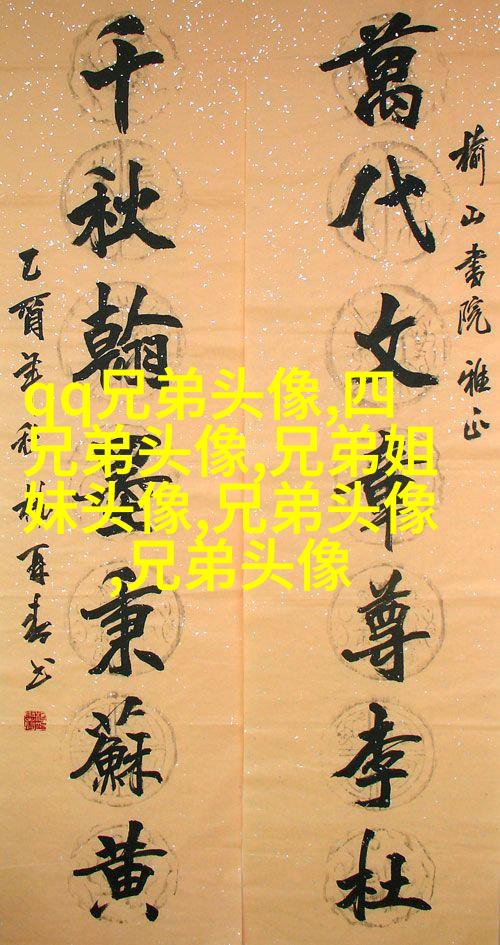 榆山書院雅正
萬代文章尊李杜
千秋翰墨秉蘇黄
qq兄弟头像,四
兄弟头像,兄弟姐
妹头像,兄弟头像
,兄弟头像